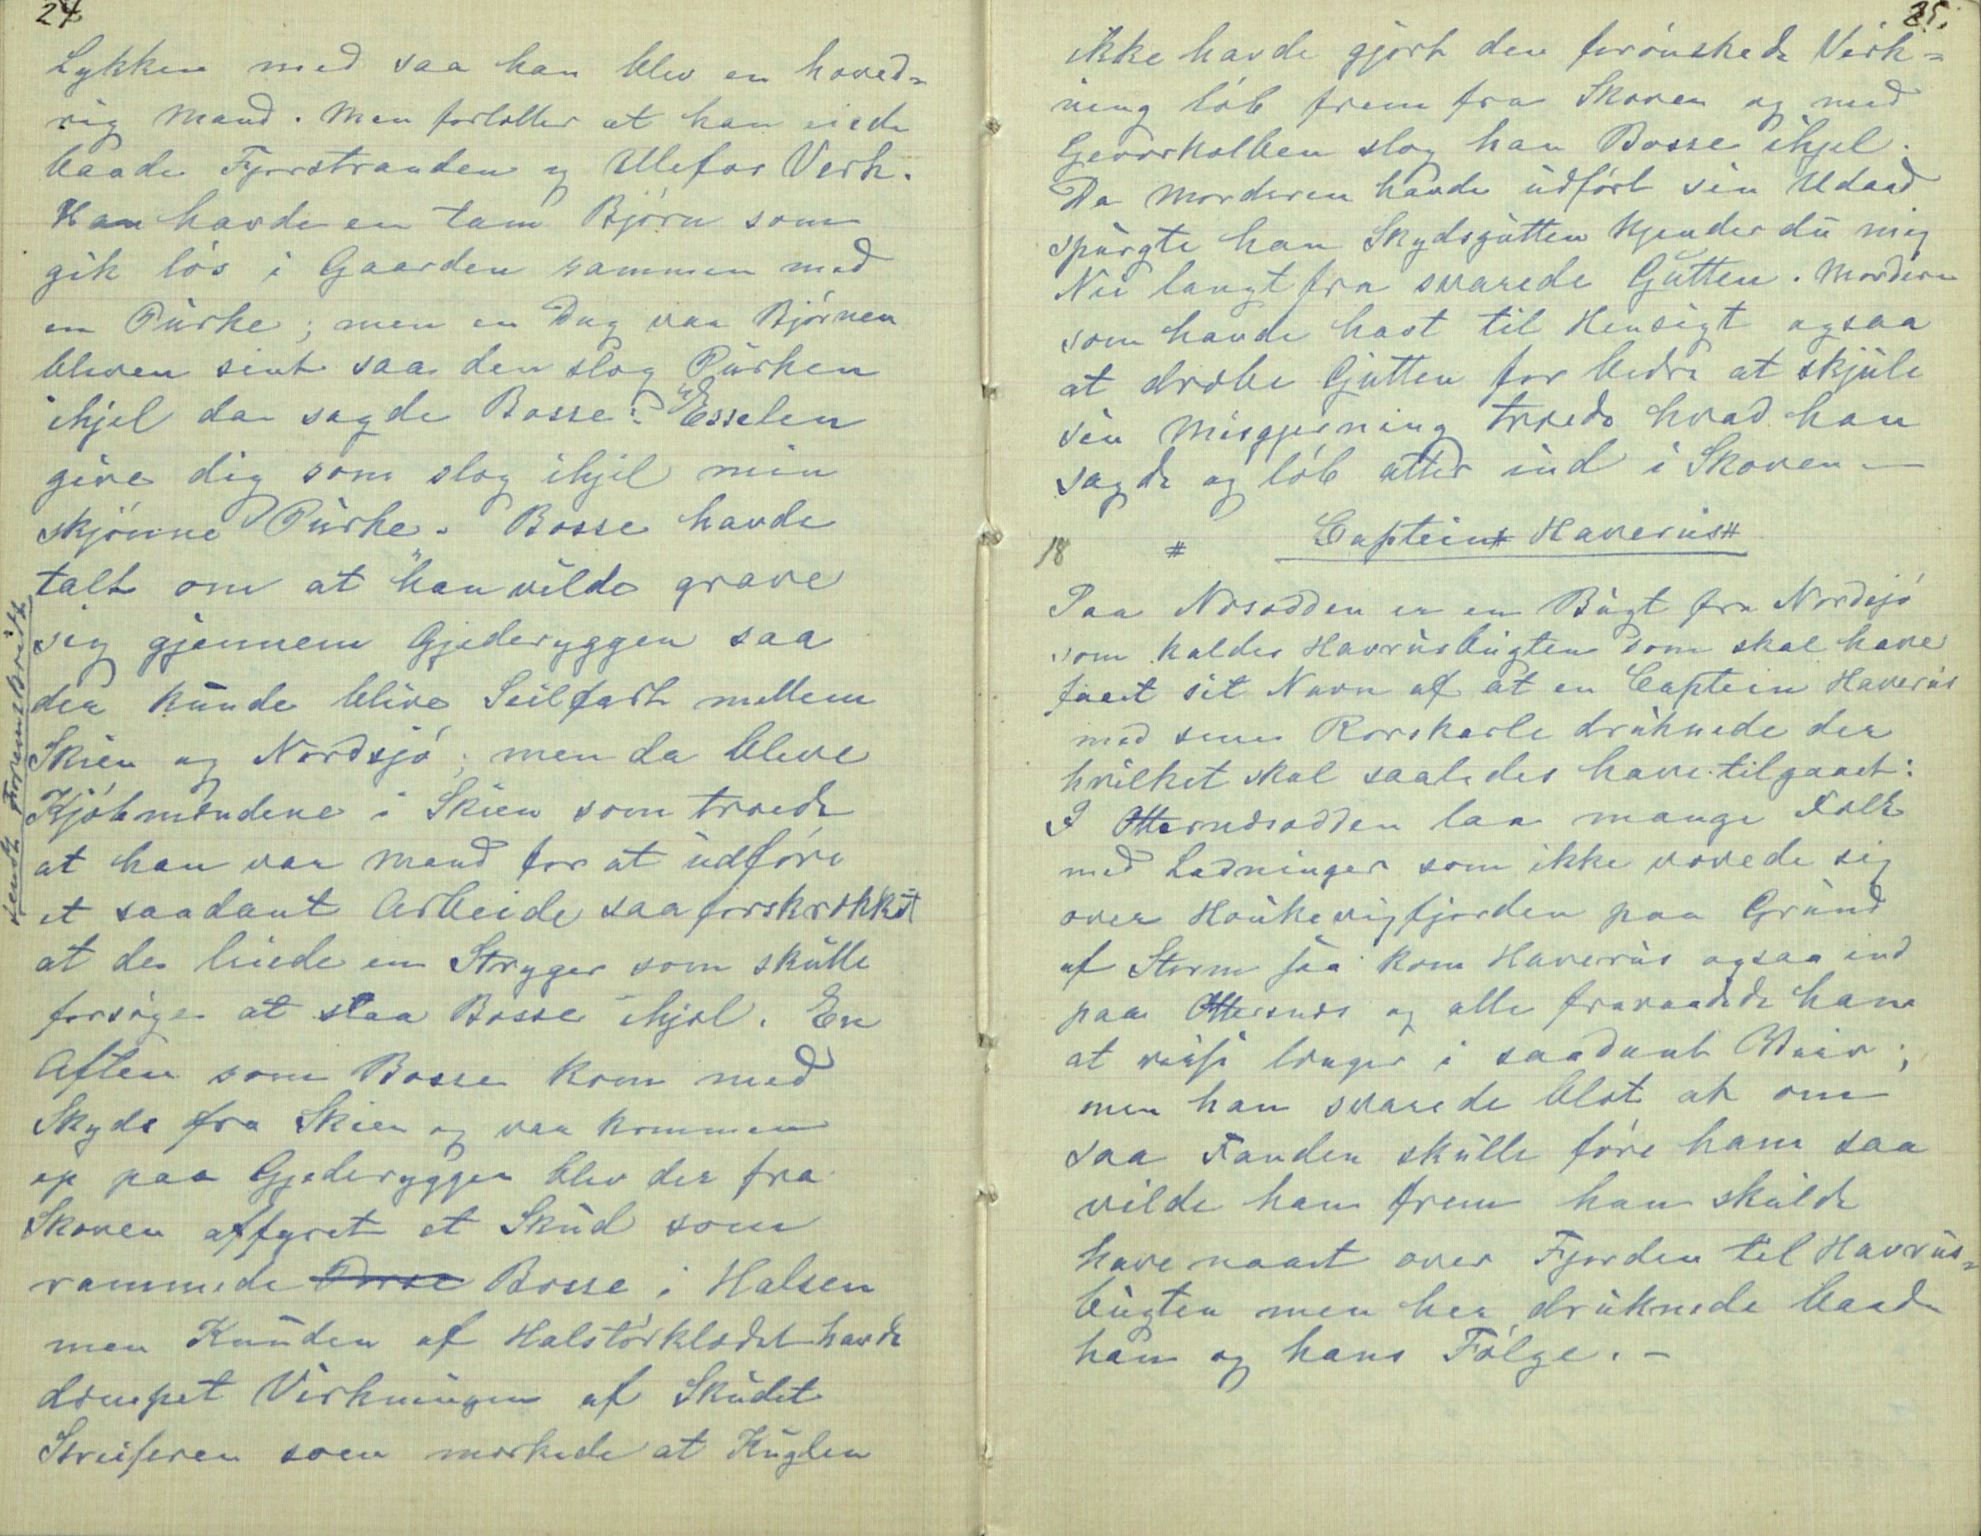 24
Lykken med saa han blev en hoved-
rig Mand. Man fortæller at han eiede
baade Fjærstranden og Ulefos Verk.
Han havde en tam Bjørn som
gik løs i Gaarden sammen med
en Purke; men en Dag var Bjørnen
bleven sint saa den slog Purken
ihjel da sagde Bosse: "Esselen
give dig som slog ihjel min
skjønne Purke". Bosse havde
talt om at han vilde grave
sig gjennem Gjederyggen saa
der kunde blive Seilfart mellem
Skien og Nordsjø; men da bleve
Kjøbmændene i Skien som troede
at han var Mand for at udføre
et saadant Arbeide saa forskrækket
at de leiede en Stryger som skulle
forsøge at slaa Bosse ihjel. En
Aften som Bosse kom med
Skyds fra Skien og var kommen
op paa Gjederyggen blev der fra
Skoven affyret et Skud som
rammede Bosse i Halsen
men Knuden af Halstørklædet havde
dæmpet Virkningen af Skudet
som mærkede at Kuglen
sendt Fremskridt
25.
ikke havde gjort den forønskede Virk-
ning løb frem fra Skoven og med
Geværkolben slog han Bosse ihjel.
Da Morderen havde udført sin Udaad
spurgte han Skydsgutten Kjender du mig
Nei langt fra svarede Gutten. Morderen
som havde havt til Hensigt ogsaa
at dræbe Gutten for bedre at skjule
sin Misgjerning troede hvad han
sagde og løb atter ind i Skoven —
18 # Captein Haverus #
Paa Næsodden er en Bugt fra Nordsjø
som kaldes Havrusbugten som skal have
faaet sit Navn af at en Captein Haverus
med sine Rorskarle druknede der
hvilket skal saaledes have tilgaaet:
I Otternæsodden laa mange Folk
med Ladninger som ikke vovede sig
over Houkevigfjorden paa Grund
af Storm saa kom Haverus ogsaa ind
paa Otternæs og alle fraraadede ham
at reise længer i saadant Veir;
men han svarede blot at om
saa Fanden skulle føre ham saa
vilde han frem han skulde
have naaet over Fjorden til Havrus-
bugten men her druknede baade
han og hans Følge. —